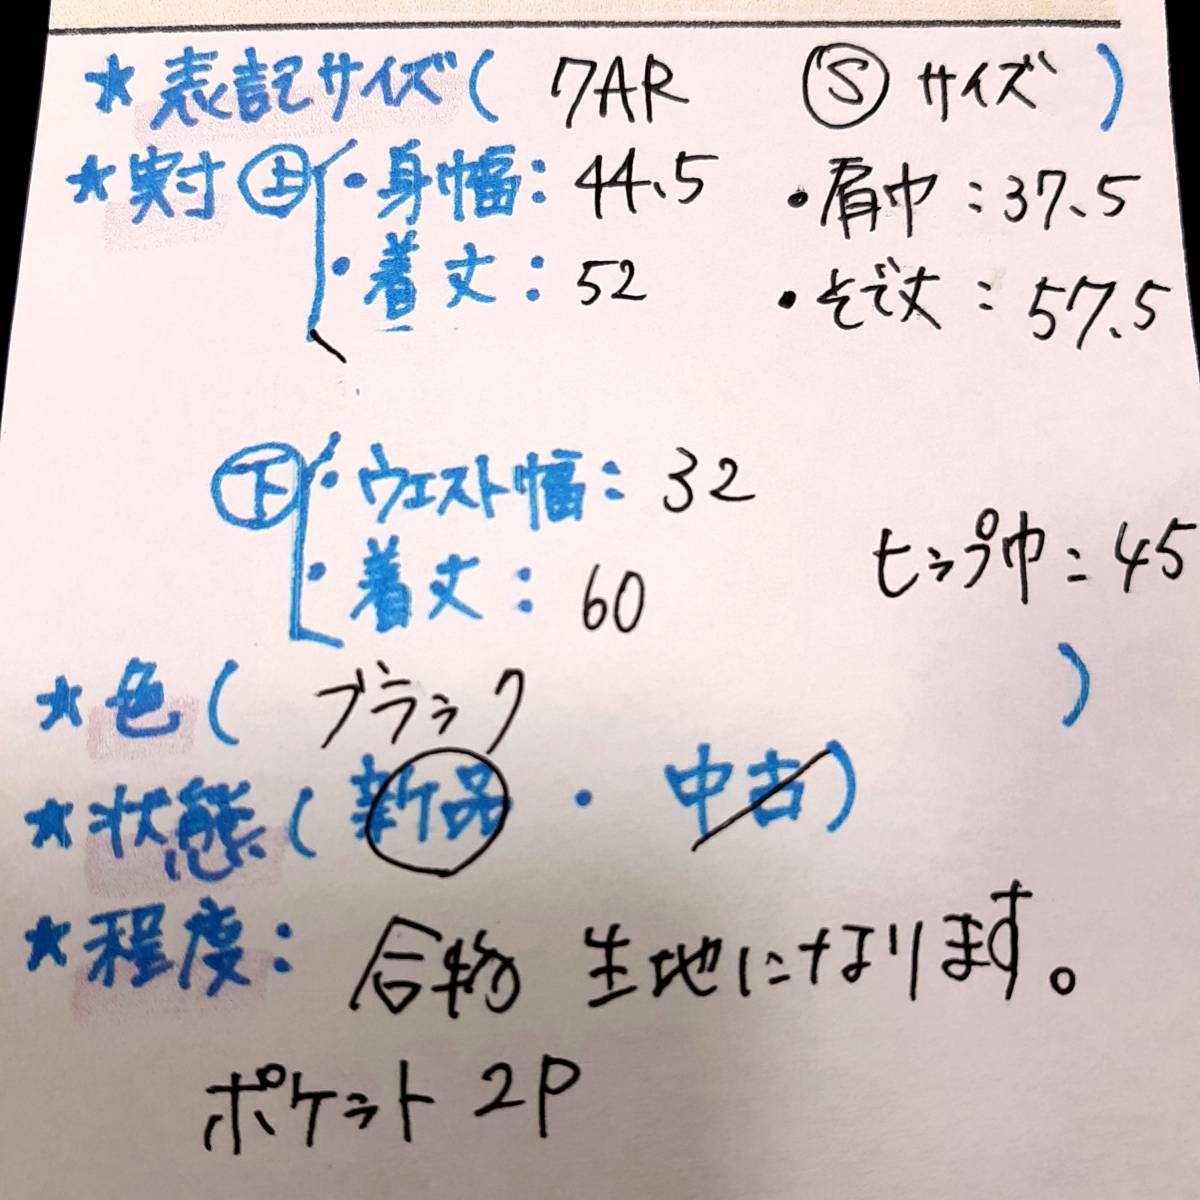 ★表記サイズ( 7AR Ⓢ サイズ )
★実寸 ㊤ ・身幅：44.5 ・肩巾：37.5
・着丈：52 ・そで丈：57.5
㊦ ・ウエスト幅：32
ヒップ巾：45
・着丈：60
★色( ブラック )
★状態( 新品 ・ 中古)
★程度： 合物 生地になります。
ポケット 2P